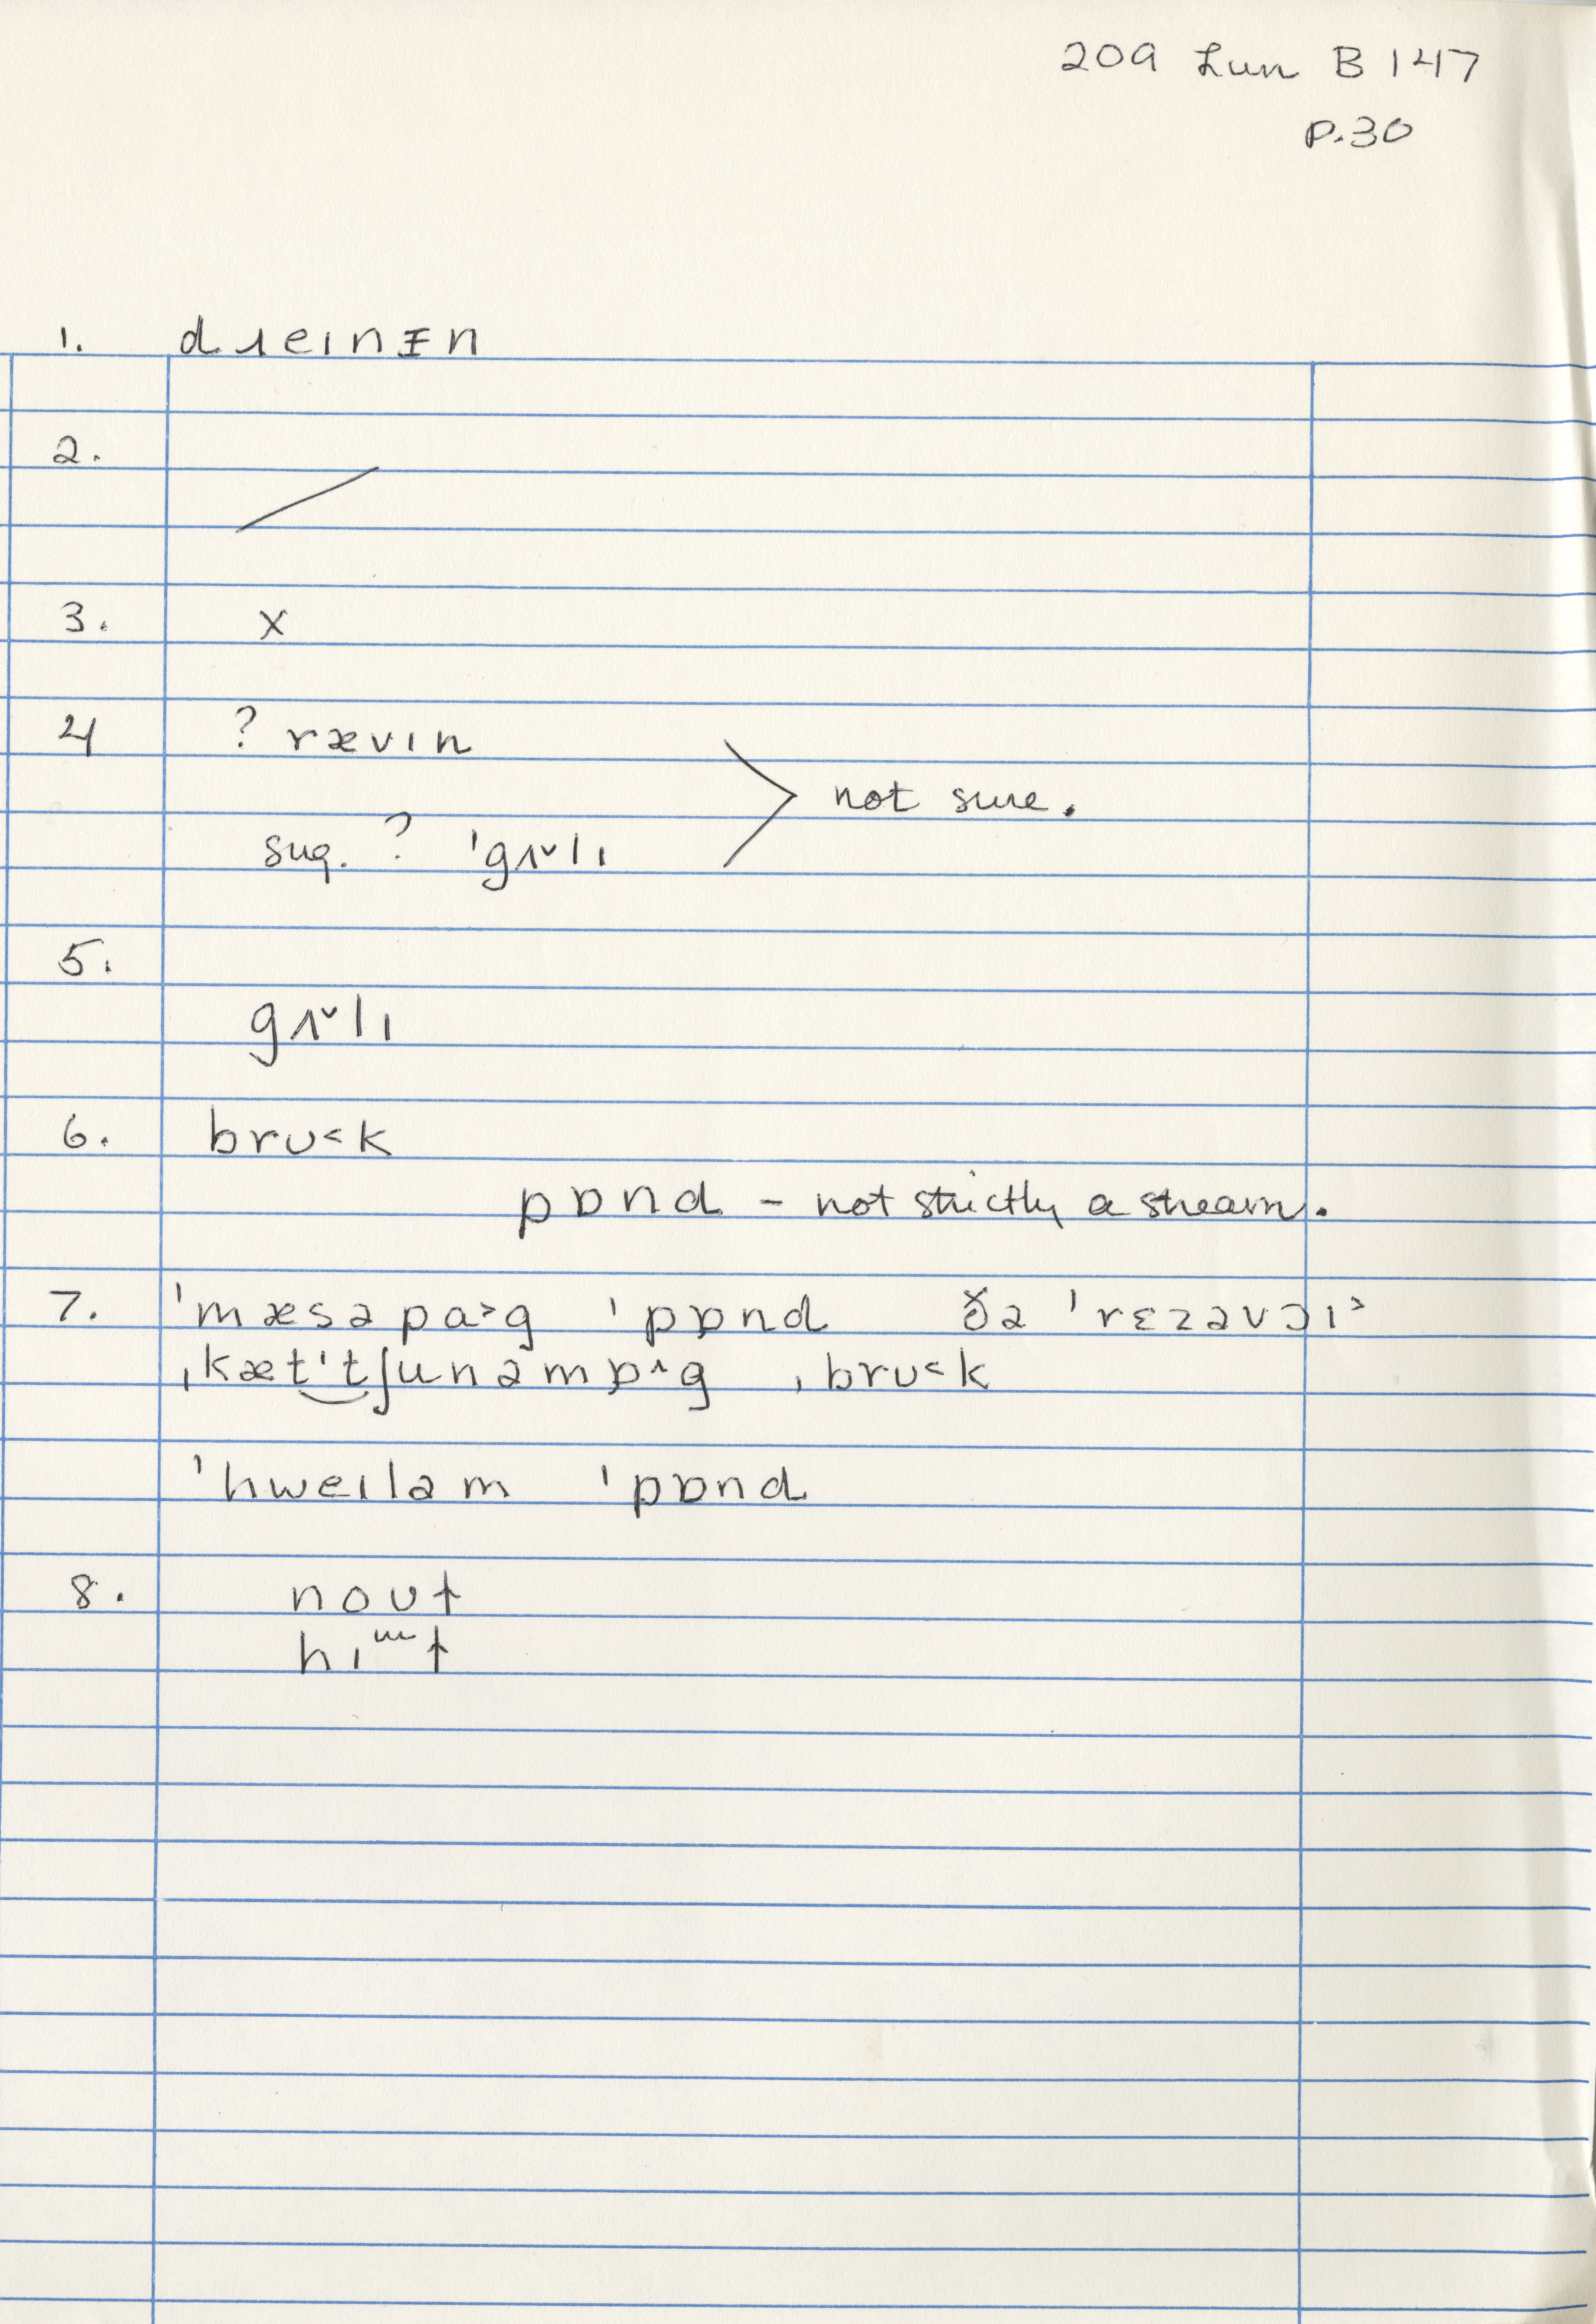 209 Lun B 147
p.30
1. dɹeɪnɪ̵n
2. /
3. x
4 ? rævɪn
sug. ? 'gʌ˅lɪ > not sure.
5.
gʌ˅lɪ
6. brʊ˂k
pɒnd – not strictly a stream.
7. 'mæsəpa˃g 'pɒnd ðə 'rɛzəvɔɪ˃
ˌkæt'tʃunəmɒ˄g ˌbrʊ˂k
'hweɪləm 'pɒnd
8. noʊt
hɪᵚt